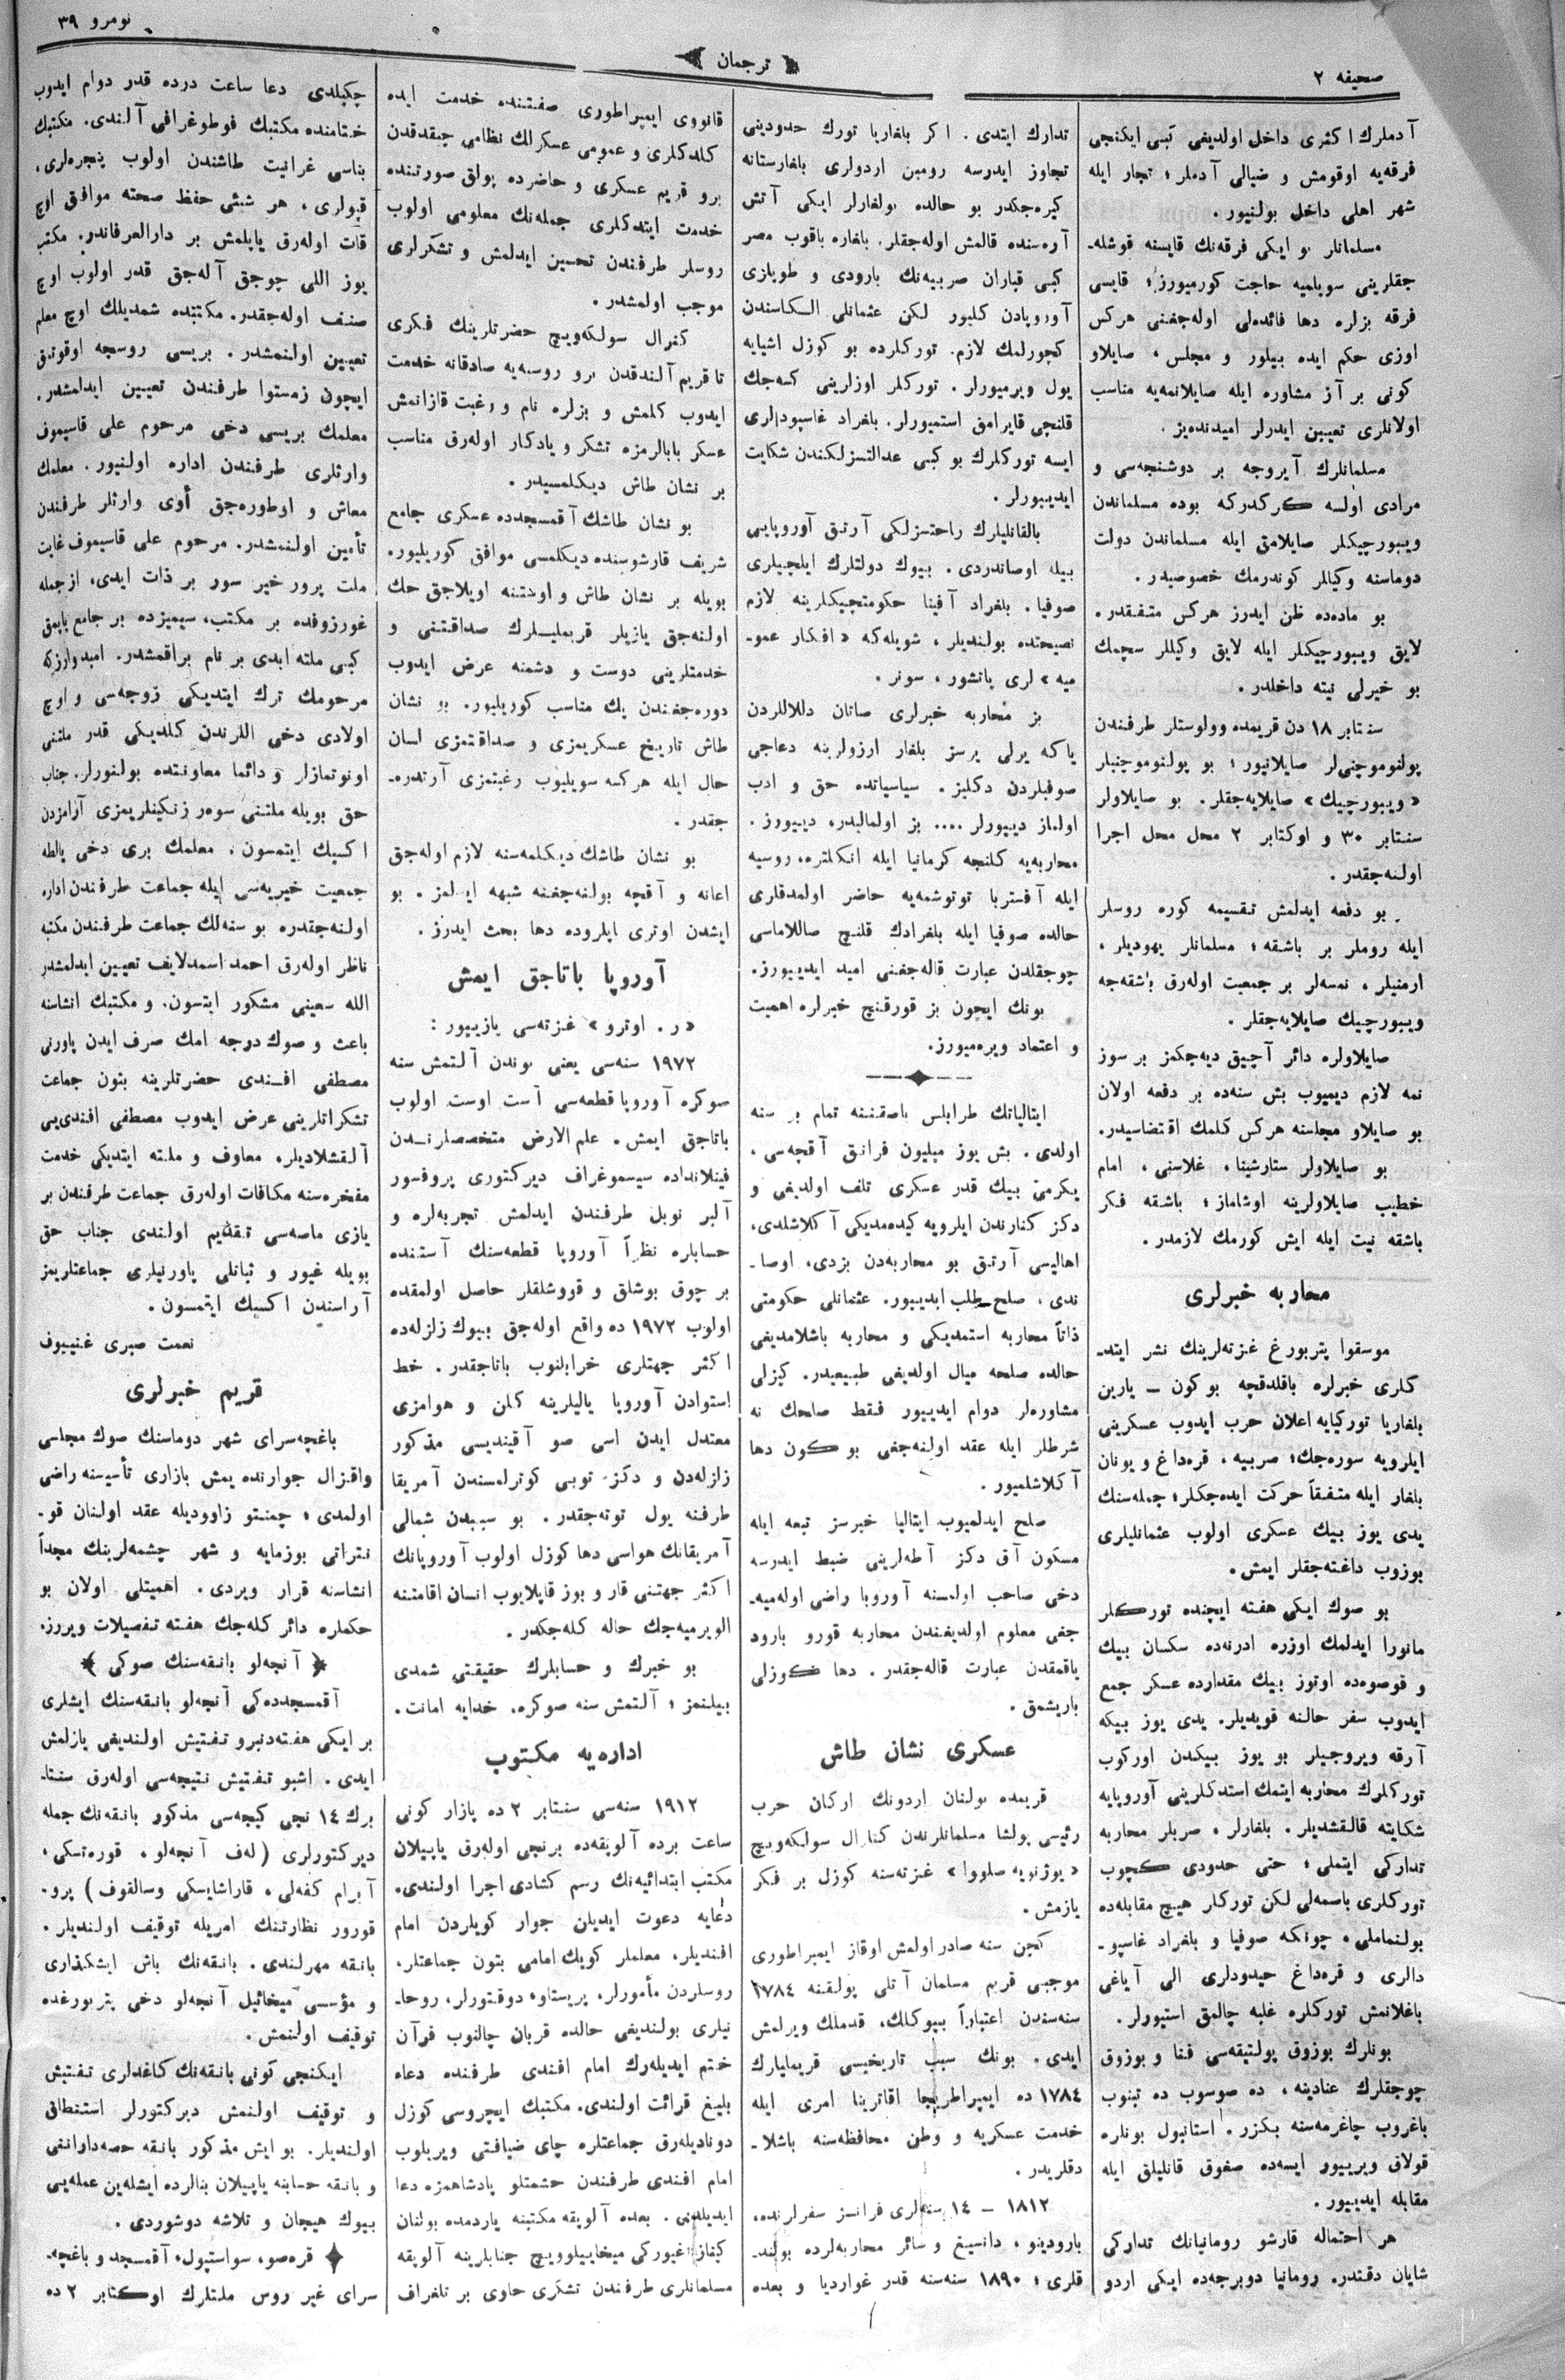 صحیفه ٢
ترجمان
نومرو ٣٩
آدملرك اكثری داخل اولدیغی كبی ایكنجی
فرقه‌یه اوقومش و ضیالی آدملر؛ تجار ایله
شهر اهلی داخل بولنیور.
مسلمانلر بو ایكی فرقه‌نك قایسنه قوشله‌ـ
جقلرینی سویلمیه حاجت كورمیورز؛ قایسی
فرقه بزلره دها فائده‌لی اوله‌جغنی هركس
اوزی حكم ایده بیلور و مجلس، صایلاو
كونی بر آز مشاوره ایله صایلانمه‌یه مناسب
اولانلری تعیین ایدرلر امیدنده‌یز.
مسلمانلرك آیروجه بر دوشنجه‌سی و
مرادی اولسه كركدركه بوده مسلماندن
ویبورچیكلر صایلامق ایله مسلماندن دولت
دوماسنه وكیللر كوندرمك خصوصیدر.
بو ماده‌ده ظن ایدرز هركس متفقدر.
لایق ویبورچیكلر ایله لایق وكیللر سچمك
بو خیرلی نیته داخلدر.
سنتابر ١٨ دن قریمده وولوستلر طرفندن
پولنوموچنی‌لر صایلانیور؛ بو پولنوموچنیلر
«ویبورچیك» صایلایه‌جقلر. بو صایلاولر
سنتابر ٣٠ و اوكتابر ٢ محل محل اجرا
اولنه‌جقدر.
بو دفعه ایدلمش تقسیمه كوره روسلر
ایله روملر بر باشقه؛ مسلمانلر یهودیلر،
ارمنیلر، نمسه‌لر بر جمعیت اوله‌رق باشقه‌جه
ویبورچیك صایلایه‌جقلر.
صایلاولره دائر آچیق دیه‌جكمز بر سوز
نمه لازم دیمیوب بش سنه‌ده بر دفعه اولان
بو صایلاو مجلسنه هركس كلمك اقتضاسیدر.
بو صایلاولر ستارشینا، غلاسنی، امام
خطیب صایلاولرینه اوشاماز؛ باشقه فكر
باشقه نیت ایله ایش كورمك لازمدر.
محاربه خبرلری
موسقوا پتربورغ غزته‌لرینك نشر ایتدـ
كلری خبرلره باقلدقچه بو كون – یارین
بلغاریا توركیایه اعلان حرب ایدوب عسكرینی
ایلرویه سوره‌جك؛ صربیه، قره‌داغ و یونان
بلغار ایله متفقاً حركت ایده‌جكلر؛ جمله‌سنك
یدی یوز بیك عسكری اولوب عثمانلیلری
بوزوب داغته‌جقلر ایمش.
بو صوك ایكی هفته ایچنده توركلر
مانورا ایدلمك اوزره ادرنه‌ده سكسان بیك
و قوصوه‌ده اوتوز بیك مقدارده عسكر جمع
ایدوب سفر حالنه قویدیلر. یدی یوز بیكه
آرقه ویروجیلر بو یوز بیكدن اوركوب
توركلرك محاربه ایتمك استدكلرینی آوروپایه
شكایته قالقشدیلر. بلغارلر، صربلر محاربه
تداركی ایتملی؛ حتی حدودی كچوب
توركلری باصمه‌لی لكن توركلر هیچ مقابله‌ده
بولنماملی، چونكه صوفیا و بلغراد غاسپوـ
دالری و قره‌داغ حیدودلری الی آیاغی
باغلانمش توركلره غلبه چالمق استیورلر.
بونلرك بوزوق پولتیقه‌سی فنا و بوزوق
چوجقلرك عنادینه، ده صوسوب ده تپنوب
باغروب چاغرمه‌سنه بكزر. استانبول بونلره
قولاق ویرییور ایسه‌ده صغوق قانلیلق ایله
مقابله ایدییور.
هر احتماله قارشو رومانیانك تداركی
شایان دقتدر. رومانیا دوبرجه‌ده ایكی اردو
تدارك ایتدی. اكر بلغاریا تورك حدودینی
تجاوز ایدرسه رومین اردولری بلغارستانه
كیره‌جكدر بو حالده بولغارلر ایكی آتش
آره‌سنده قالمش اوله‌جقلر. بلغاره باقوب مصر
كبی قباران صربیه‌نك بارودی و طوپلری
آوروپادن كلیور لكن عثمانلی السكاسندن
كچورلمك لازم. توركلرده بو كوزل اشیایه
یول ویرمیورلر. توركلر اوزلرینی كسه‌جك
قلنجی قایرامق استمیورلر. بلغراد غاسپودالری
ایسه توركلرك بو كبی عدالتسزلكندن شكایت
ایدییورلر.
بالقانلیلرك راحتسزلكی آرتق آوروپایی
بیله اوصاندردی. بیوك دولتلرك ایلچیلری
صوفیا، بلغراد آفینا حكومتچیكلرینه لازم
نصیحتده بولندیلر، شویله‌كه «افكار عموـ
میه» لری یاتشور، سونر.
بز محاربه خبرلری صاتان دلاللردن
یا كه یرلی یرسز بلغار ارزولرینه دعاجی
صوفیلردن دكلیز. سیاسیاتده حق و ادب
اولماز دییورلر .... بز اولمالیدر، دییورز.
محاربه‌یه كلنجه كرمانیا ایله انكلتره، روسیه
ایله آفستریا توتوشمه‌یه حاضر اولمدقلری
حالده صوفیا ایله بلغرادك قلنچ صاللاماسی
چوجقلدن عبارت قاله‌جغنی امید ایدییورز.
بونك ایچون بز قورقنچ خبرلره اهمیت
و اعتماد ویره‌میورز.
ایتالیانك طرابلس باصقننه تمام بر سنه
اولدی. بش یوز میلیون فرانق آقچه‌سی،
یكرمی بیك قدر عسكری تلف اولدیغی و
دكز كنارندن ایلرویه كیده‌مدیكی آكلاشلدی.
اهالیسی آرتق بو محاربه‌دن بزدی، اوصاـ
ندی، صلح طلب ایدییور. عثمانلی حكومتی
ذاتاً محاربه استمدیكی و محاربه باشلامدیغی
حالده صلحه میال اولدیغی طبیعیدر. كیزلی
مشاوره‌لر دوام ایدییور فقط صلحك نه
شرطلر ایله عقد اولنه‌جغی بو كون دها
آكلاشلمیور.
صلح ایدلمیوب ایتالیا خبرسز تبعه ایله
مسكون آق دكز آطه‌لرینی ضبط ایدرسه
دخی صاحب اولمسنه آوروپا راضی اوله‌میه‌ـ
جغی معلوم اولدیغندن محاربه قورو بارود
یاقمقدن عبارت قاله‌جقدر. دها كوزلی
باریشمق.
عسكری نشان طاش
قریمده بولنان اردونك اركان حرب
رئیسی بولشا مسلمانلرندن كنارال سولكه‌ویچ
«یوژنویه صلووا» غزته‌سنه كوزل بر فكر
یازمش.
كچن سنه صادر اولمش اوقاز ایمپراطوری
موجبی قریم مسلمان آتلی پولقنه ١٧٨٤
سنه‌سندن اعتباراً بیوكلك، قدملك ویرلمش
ایدی. بونك سبب تاریخیسی قریملیلرك
١٧٨٤ ده ایمپراطریچا اقاترینا امری ایله
خدمت عسكریه و وطن محافظه‌سنه باشلاـ
دقلریدر.
١٨١٢ – ١٤ سنه‌لری فرانسز سفرلرنده،
بارودینو، دانسیغ و سائر محاربه‌لرده بولندـ
قلری؛ ١٨٩٠ سنه‌سنه قدر غواردیا و بعده
قانووی ایمپراطوری صفتنده خدمت ایده
كلدكلری و عمومی عسكرلك نظامی چیقدقدن
برو قریم عسكری و حاضرده پولق صورتنده
خدمت ایتدكلری جمله‌نك معلومی اولوب
روسلر طرفندن تحسین ایدلمش و تشكرلری
موجب اولمشدر.
كنرال سولكه‌ویچ حضرتلرینك فكری
تا قریم آلندقدن برو روسیه‌یه صادقانه خدمت
ایدوب كلمش و بزلره نام و رغبت قازانمش
عسكر بابالرمزه تشكر و یادكار اوله‌رق مناسب
بر نشان طاش دیكلمسیدر.
بو نشان طاشك آقمسجدده عسكری جامع
شریف قارشوسنده دیكلمسی موافق كوریلیور.
بویله بر نشان طاش و اوستنه اویلاجق حك
اولنه‌جق یازیلر قریملیلرك صداقتنی و
خدمتلرینی دوست و دشمنه عرض ایدوب
دوره‌جغندن پك مناسب كوریلیور. بو نشان
طاش تاریخ عسكریمزی و صداقتمزی لسان
حال ایله هركسه سویلیوب رغبتمزی آرتدره‌ـ
جقدر.
بو نشان طاشك دیكلمه‌سنه لازم اوله‌جق
اعانه و آقچه بولنه‌جغنه شبهه ایدلمز. بو
ایشدن اوتری ایلروده دها بحث ایدرز.
آوروپا باتاجق ایمش
«ر. اوترو» غزته‌سی یازییور:
١٩٧٢ سنه‌سی یعنی بوندن آلتمش سنه
صوكره آوروپا قطعه‌سی آست اوست اولوب
باتاجق ایمش. علم الارض متخصصلرندن
فینلانداده سیسموغراف دیركتوری پروفسور
آلبر نوبل طرفندن ایدلمش تجربه‌لره و
حسابلره نظراً آوروپا قطعه‌سنك آستنده
بر چوق بوشلق و قووشلقلر حاصل اولمقده
اولوب ١٩٧٢ ده واقع اوله‌جق بیوك زلزله‌ده
اكثر جهتلری خرابلنوب باتاجقدر. خط
استوادن آوروپا یالیلرینه كلن و هوامزی
معتدل ایدن اسی صو آقیندیسی مذكور
زلزله‌دن و دكز توبی كوترلمسندن آمریقا
طرفنه یول توته‌جقدر. بو سببدن شمالی
آمریقانك هواسی دها كوزل اولوب آوروپانك
اكثر جهتنی قار و بوز قاپلایوب انسان اقامتنه
الویرمیه‌جك حاله كله‌جكدر.
بو خبرك و حسابلرك حقیقتی شمدی
بیلنمز؛ آلتمش سنه صوكره. خدایه امانت.
اداره‌یه مكتوب
١٩١٢ سنه‌سی سنتابر ٢ ده پازار كونی
ساعت برده آلوپقه‌ده برنجی اوله‌رق یاپیلان
مكتب ابتدائیه‌نك رسم كشادی اجرا اولندی.
دعایه دعوت ایدیلن جوار كویلردن امام
افندیلر، معلملر كویك امامی بتون جماعتلر،
روسلردن مأمورلر، پریستاو، دوقتورلر، روحاـ
نیلری بولندیغی حالده قربان چالنوب قرآن
ختم ایدیله‌رك امام افندی طرفنده دعاء
بلیغ قرائت اولندی. مكتبك ایچروسی كوزل
دونادیله‌رق جماعتلره چای ضیافتی ویریلوب
امام افندی طرفندن حشمتلو پادشاهمزه دعا
ایدیلدی. بعده آلوپقه مكتبنه یاردمده بولنان
كیناز غیوركی میخاییلوویچ جنابلرینه آلوپقه
مسلمانلری طرفندن تشكری حاوی بر تلغراف
چكیلدی دعا ساعت درده قدر دوام ایدوب
ختامنده مكتبك فوطوغرافی آلندی. مكتبك
بناسی غرانیت طاشندن اولوب پنجره‌لری،
قپولری، هر شیئی حفظ صحته موافق اوچ
قات اوله‌رق یاپلمش بر دارالعرفاندر. مكتب
یوز اللی چوجق آله‌جق قدر اولوب اوچ
صنف اوله‌جقدر. مكتبده شمدیلك اوچ معلم
تعیین اولنمشدر. بریسی روسجه اوقوتق
ایچون زمستوا طرفندن تعیین ایدلمشدر.
معلمك بریسی دخی مرحوم علی قاسیموف
وارثلری طرفندن اداره اولنیور. معلمك
معاش و اوطوره‌جق أوی وارثلر طرفندن
تأمین اولنمشدر. مرحوم علی قاسیموف غایت
ملت پرور خیر سور بر ذات ایدی، ازجمله
غورزوفده بر مكتب، سیمیزده بر جامع یاپمق
كبی ملته ابدی بر نام براقمشدر. امیدوارزكه
مرحومك ترك ایتدیكی زوجه‌سی و اوچ
اولادی دخی اللرندن كلدیكی قدر ملتنی
اونوتمازلر و دائما معاونتده بولنورلر. جناب
حق بویله ملتنی سوه‌ر زنكینلریمزی آرامزدن
اكسیك ایتمسون. معلمك بری دخی یالطه
جمعیت خیریه‌سی ایله جماعت طرفندن اداره
اولنه‌جقدره بو سنه‌لك جماعت طرفندن مكتبه
ناظر اوله‌رق احمد اسمدلایف تعیین ایدلمشدر
الله سعینی مشكور ایتسون. و مكتبك انشاسنه
باعث و صوك درجه امك صرف ایدن یاورنی
مصطفی افندی حضرتلرینه بتون جماعت
تشكراتلرینی عرض ایدوب مصطفی افندی‌یی
آلقشلادیلر. معاوف و ملته ایتدیكی خدمت
مفخره‌سنه مكافات اوله‌رق جماعت طرفندن بر
یازی ماصه‌سی تقدیم اولندی جناب حق
بویله غیور و ثباتلی یاورنیلری جماعتلریمز
آراسندن اكسیك ایتمسون.
نعمت صبری غنییوف
قریم خبرلری
باغچه‌سرای شهر دوماسنك صوك مجلسی
واقزال جوارنده یمش بازاری تأسیسنه راضی
اولمدی؛ چمنتو زاوودیله عقد اولنان قوـ
نتراتی بوزمایه و شهر چشمه‌لرینك مجداً
انشاسنه قرار ویردی. اهمیتلی اولان بو
حكملره دائر كله‌جك هفته تفصیلات ویررز.
﴿ آنجه‌لو بانقه‌سنك صوكی ﴾
آقمسجدده‌كی آنجه‌لو بانقه‌سنك ایشلری
بر ایكی هفته‌دنبرو تفتیش اولندیغی یازلمش
ایدی. اشبو تفتیش نتیجه‌سی اوله‌رق سنتاـ
برك ١٤ نجی كیجه‌سی مذكور بانقه‌نك جمله
دیركتورلری (لەف آنجه‌لو، قوره‌تسكی،
آبرام كفه‌لی، قاراشایسكی و سالقوف) پروـ
قورور نظارتنك امریله توقیف اولندیلر.
بانقه مهرلندی. بانقه‌نك باش ایشكذاری
و مؤسسی میخائیل آنجه‌لو دخی پتربورغده
توقیف اولنمش.
ایكنجی كونی بانقه‌نك كاغدلری تفتیش
و توقیف اولنمش دیركتورلر استنطاق
اولندیلر. بو ایش مذكور بانقه حصه‌دارانغی
و بانقه حسابنه یاپیلان بنالرده ایشله‌ین عمله‌یی
بیوك هیجان و تلاشه دوشوردی.
✦ قره‌صو، سواستپول، آقمسجد و باغچه‌ـ
سرای غیر روس ملتلرك اوكتابر ٢ ده